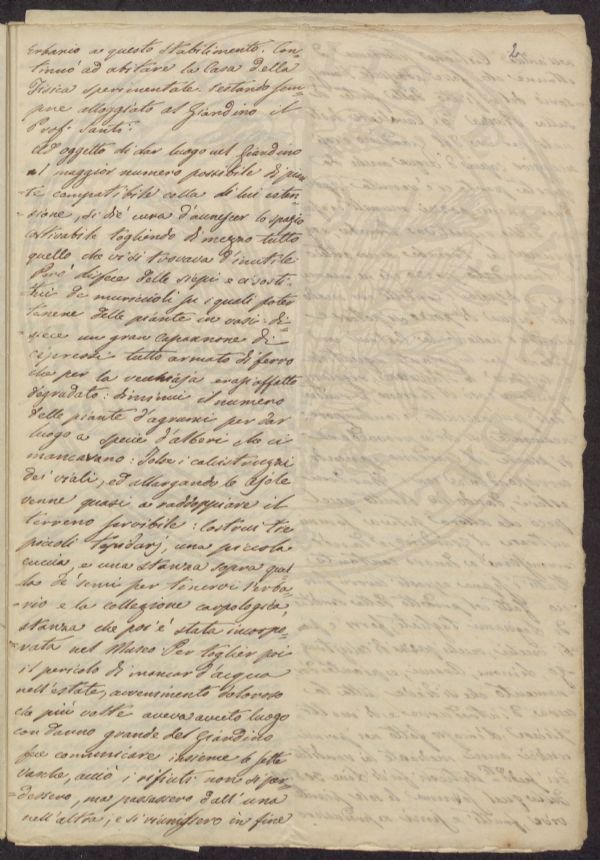 2
Erbario a questo stabilimento. Con-
tinuò ad abitare la Casa della
Fisica sperimentale restando sem
pre alloggiato al Giardino il
Prof. Santi.
Ad oggetto di dar luogo nel Giardino
al maggior numero possibile di pian
te compatibile colla di lui esten-
-sione, si diè cura d'accrescer lo spazio
coltivabile togliendo di mezzo tutto
quello che vi si trovava d'inutile
Però disfece delle siepi e ci sosti-
tuì de' muricioli su i quali poter
tenere delle piante in vasi: di-
sfece un gran capannone di
cipressi tutto armato di ferro
che per la vecchiaja erasi affatto
degradato: diminuì il numero
delle piante d'agrumi per dar
luogo a specie d'alberi che ci
mancavano: Tolse i calcistruzzi
dei viali, ed allargando le ajole
venne quasi a raddoppiare il
terreno servibile: Costruì tre
piccoli Tepidarj, una piccola
e una stanza sopra quel
la de' semi per tenervi l'erba-
-rio e la collezione carpologica,
stanza che poi è stata incorpo-
-rata nel Museo. Per toglier poi
il pericolo di mancar d'acqua
nell'estate, avvenimento doloroso
che più volte aveva avuto luogo
con danno grande del Giardino
fece comunicare insieme le sette
vasche, acciò i rifiuti non si per-
dessero, ma passassero dall'una
nell'altra, e si riunissero in fine